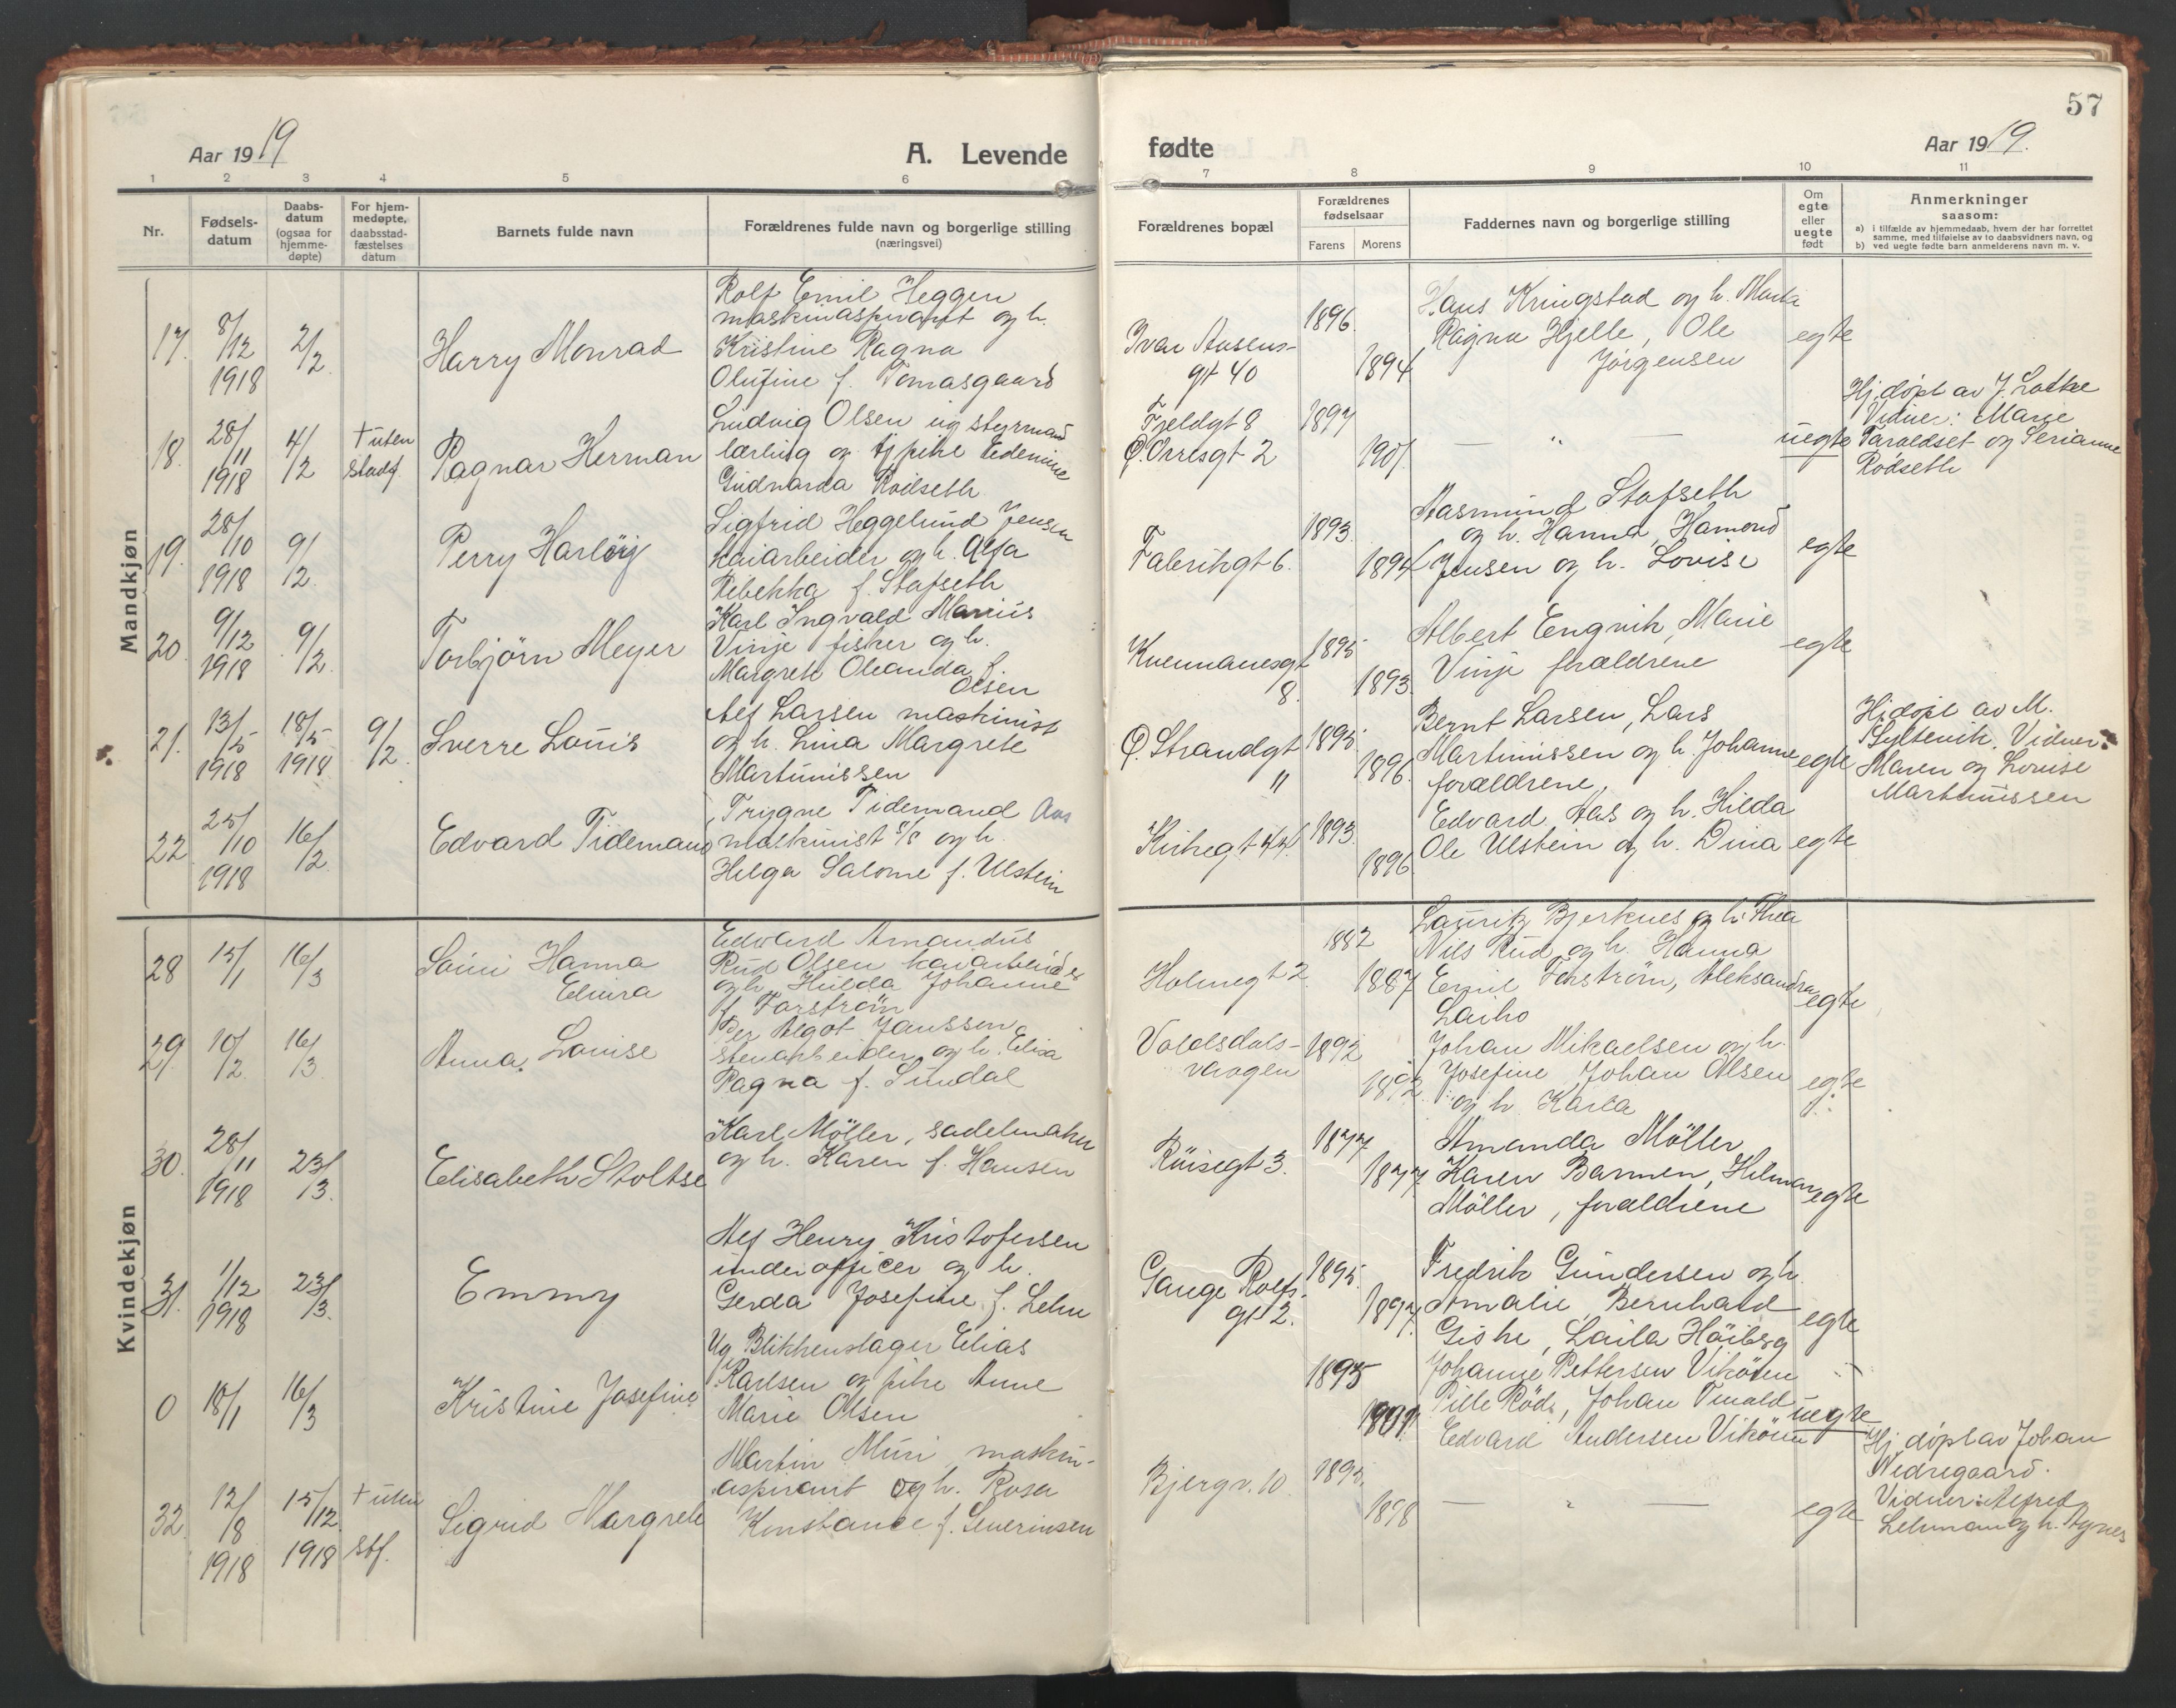 57
Aar 1919
A. Levende
fødte
Aar 1919.
1 2 3 4 5 6 7 8 9 10 11
Nr.
Fødselsdatum
Daabsdatum (ogsaa for hjemmedøpte)
For hjemmedøpte, daabsstadfæstelses datum
Barnets fulde navn
Forældrenes fulde navn og borgerlige stilling
(næringsvei)
Forældrenes bopæl
Forældrenes fødselsaar
Farens Morens
Faddernes navn og borgerlige stilling
Om egte eller uegte født
Anmerkninger
saasom:
a) i tilfælde av hjemmedaab, hvem der har forrettet
samme, med tilføielse av to daabsvidners navn, og
b) ved uegte fødte barn anmelderens navn m. v.
Mandkjøn
17. 8/12 1918 2/2 Harry Monrad
Rolf Emil Heggen
maskinaspirant og h.
Kristine Ragna
Olufine f. Tomasgaard
Ivar Aasens-
gt 40
1896. 1894
Hans Kringstad og h. Marta
Ragna Hjelle, Ole
Jörgensen
egte
18. 28/11 1918 4/2 + uten stadf. Ragnar Herman
Ludvig Olsen ug styrmand
lærling og tj pike Edenine
Gudnarda Rödseth
Fjeldgt 8
Ø. Orresgt 2
1897 1901.
— " —
uegte
Hj. døpt av J. Lothe
Vidner: Marie
Taraldset og Serianne
Rödseth
19. 28/10 1918 9/2. Perry Harlöig
Sigfrid Heggelund Jensen
kaiarbeider og h. Alfa
Ribekka f. Stafseth
Fabrikgt 6.
1893. 1894
Aasmund Stafseth
og h. Hanna, Hamond
Jensen og h. Lovise
egte
20. 9/12 1918 9/2. Torbjörn Meyer
Karl Ingvald Marius
Vinje fisker og h.
Margrete Oleanda f.
Olsen
8.
1895 1893.
Albert Engvik, Marie
Vinje forældrene
egte
21. 13/5 1918 18/5 1918 9/2. Sverre Louis
Alf Larsen maskinist
og h. Lina Margrete
Martinussen
Ø. Strandgt
11
1895. 1896.
Bernt Larsen, Lars
Martinussen og h. Johanne
forældrene
egte
Hj. døpt av M.
Syltevik. Vidner:
Maren og Louise
Martinussen
22 25/10 1918 16/2 Edvard Tidemand
Trygve Tidemand Aas
maskinist s/s og h.
Helga Salome f. Ulstein
Kirkegt 44.
1893. 1896.
Edvard Aas og h. Hilda
Ole Ulstein og h. Dina
egte
Kvindekjøn
28 15/1 16/3 Saimi Hanna
Elvira
Edvard Amandus
Rud Olsen kaiarbeider
og h. Hulda Johanne
f. Forström
Holmegt 2
1882 1887
Lauritz Bjerknes og h. Thea
Nils Rud og h. Hanna
Emil Forström, Aleksandra
Laiho
egte
29. 10/2. 16/3 Anna Louise
Per Algot Janssen
stenarbeider og h. Elisa
Ragna f. Sundal
Volsdals-
vaagen
1892 1892
Johan Mikaelsen og h.
Josefine, Johan Olsen
og h. Karla
egte
30. 28/11 1918 23/3. Elisabeth Stoltse
Karl Möller, sadelmaker
og h. Karen f. Hansen
1877 1877
Amanda Möller
Karen Barmen, Hilmar
Möller, forældrene
egte
31. 1/12 1918 23/3. Emmy
Alf Henry Kristofersen
underofficer og h.
Gerda Josefine f. Lehn
Gange Rolfs.
gt 2.
1895. 1897.
Fredrik Gundersen og h.
Amalie Bernhard
Giske, Laila Höiberg
egte
0 18/1 16/3 Kristine Josefine
Ug Blikkenslager Elias
Karlsen og pike Anne
Marie Olsen
1895 1901.
Johanne Pettersen Vikören
Johan
Edvard Andersen Vikören
uegte
32. 12/8 1918 15/12 1918 + uten stf. Sigrid Margrete
Martin Muri maskin-
aspirant og h. Rosa
Konstance f. Severinsen
Bjergv. 10
1895. 1898
— " —
egte
Hj. døpt av Johan
Nedregaard.
Vidner: Alfred
Lehmann og h. Agnes